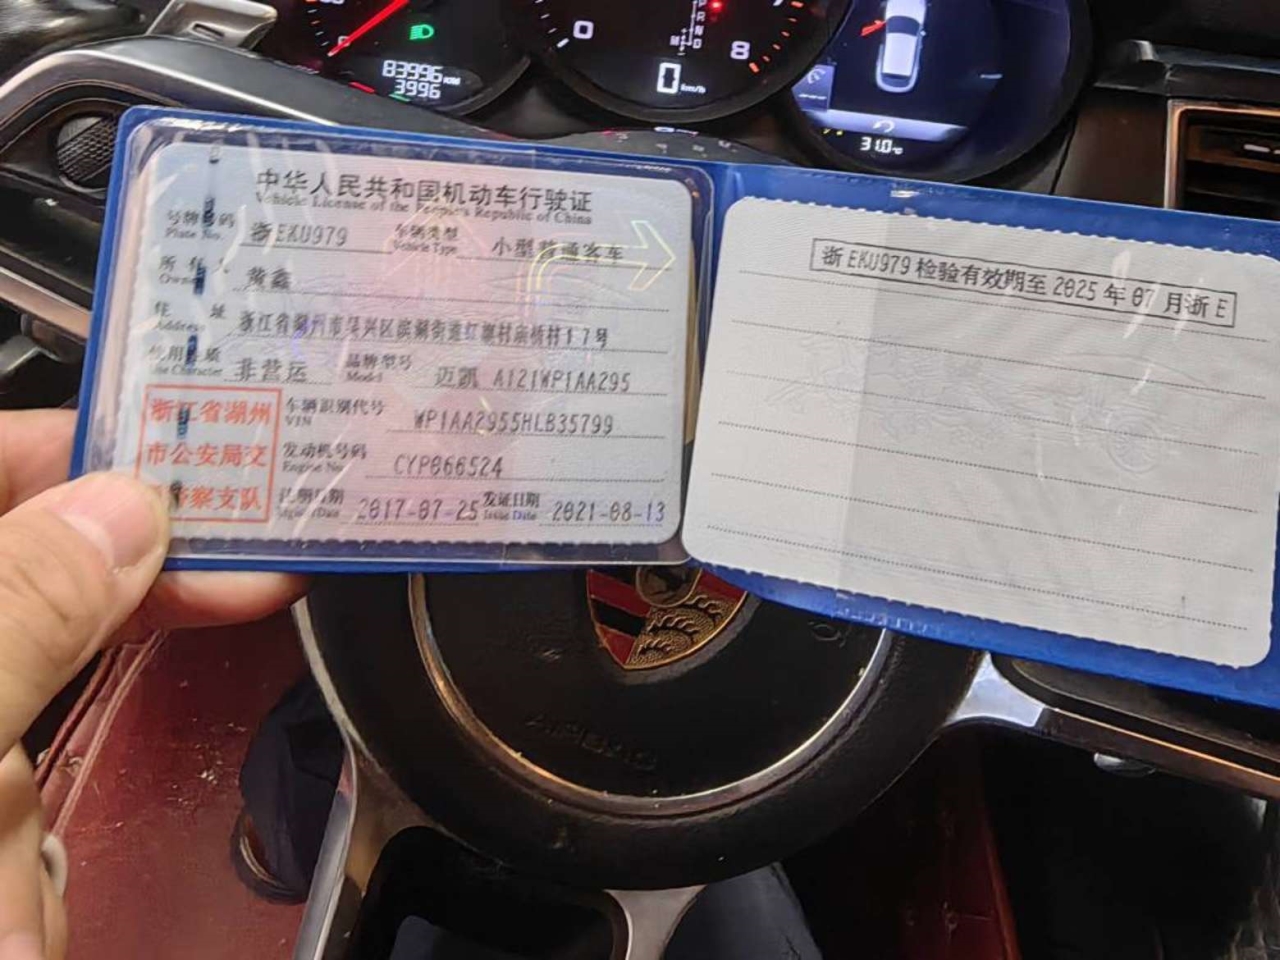 83996 KM
3996
0
8
P
R
N
D
0 km/h
31.0℃
中华人民共和国机动车行驶证
Vehicle License of the People's Republic of China
号牌号码 浙EKU979 车辆类型 小型普通客车
Plate No. Vehicle Type
所有人 黄鑫
Owner
住址 浙江省湖州市吴兴区滨湖街道红旗村庙桥村17号
Address
使用性质 非营运 品牌型号 迈凯 A121WP1AA295
Use Character Model
浙江省湖州
市公安局交
警察支队
车辆识别代号 WP1AA2955HLB35799
VIN
发动机号码 CYP066524
Engine No.
注册日期 2017-07-25 发证日期 2021-08-13
Register Date Issue Date
浙EKU979 检验有效期至 2025 年 07 月浙E
AIRBAG